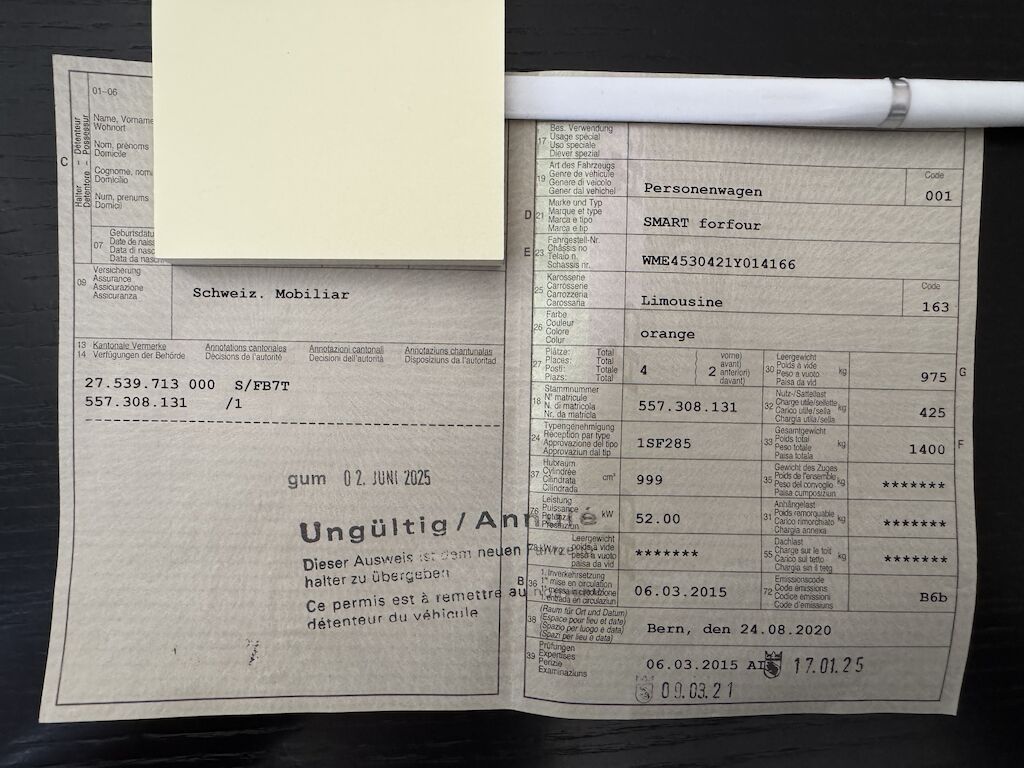 01–06
Détenteur
Possessur
Halter
Detentore
C
Name, Vorname
Wohnort
Nom, prénoms
Domicile
Cognome, nomi
Domicilio
Num, prenums
Domicil
07
Geburtsdatu
Date de naiss
Data di nasc
Data da nasch
09
Versicherung
Assurance
Assicurazione
Assicuranza
Schweiz. Mobiliar
13 Kantonale Vermerke Annotations cantonales Annotazioni cantonali Annotaziuns chantunalas
14 Verfügungen der Behörde Décisions de l'autorité Decisioni dell'autorità Disposiziuns da l'autoritad
27.539.713 000 S/FB7T
557.308.131 /1
gum 02. JUNI 2025
Ungültig / Annulé
Dieser Ausweis ist dem neuen
halter zu übergeben
Ce permis est à remettre au
détenteur du véhicule
17
Bes. Verwendung
Usage spécial
Uso speciale
Diever spezial
19
Art des Fahrzeugs
Genre de véhicule
Genere di veicolo
Gener dal vehichel
Personenwagen
Code
001
D 21
Marke und Typ
Marque et type
Marca e tipo
Marca e tip
SMART forfour
E 23
Fahrgestell-Nr.
Châssis no
Telaio n.
Schassis nr.
WME4530421Y014166
25
Karosserie
Carrosserie
Carrozzeria
Carossaria
Limousine
Code
163
26
Farbe
Couleur
Colore
Colur
orange
27
Plätze: Total
Places: Total
Posti: Totale
Plazs: Total
4
2
vorne)
avant)
anteriori)
davant)
30
Leergewicht
Poids à vide
Peso a vuoto
Paisa da vid
kg
975
G
18
Stammnummer
N° matricule
N. di matricola
Nr. da matricla
557.308.131
32
Nutz-/Sattellast
Charge utile/sellette
Carico utile/sella
Chargia utila/sella
kg
425
24
Typengenehmigung
Réception par type
Approvazione del tipo
Approvaziun dal tip
1SF285
33
Gesamtgewicht
Poids total
Peso totale
Paisa totala
kg
1400
F
37
Hubraum
Cylindrée
Cilindrata
Cilindrada
cm³
999
35
Gewicht des Zuges
Poids de l'ensemble
Peso del convoglio
Paisa cumposiziun
kg
*******
76
Leistung
Puissance
Potenza
Prestaziun
kW
52.00
31
Anhängelast
Poids remorquable
Carico rimorchiato
Chargia annexa
kg
*******
78 kW/kg
Leergewicht
poids à vide
peso a vuoto
paisa da vid
*******
55
Dachlast
Charge sur le toit
Carico sul tetto
Chargia sin il tetg
kg
*******
B 36
1. Inverkehrsetzung
1re mise en circulation
1a messa in circolazione
1. entrada en circulaziun
06.03.2015
72
Emissionscode
Code émissions
Codice emissioni
Code d'emissiuns
B6b
38
(Raum für Ort und Datum)
(Espace pour lieu et date)
(Spazio per luogo e data)
(Spazi per lieu e data)
Bern, den 24.08.2020
39
Prüfungen
Expertises
Perizie
Examinaziuns
06.03.2015 AI 17.01.25
09.03.21